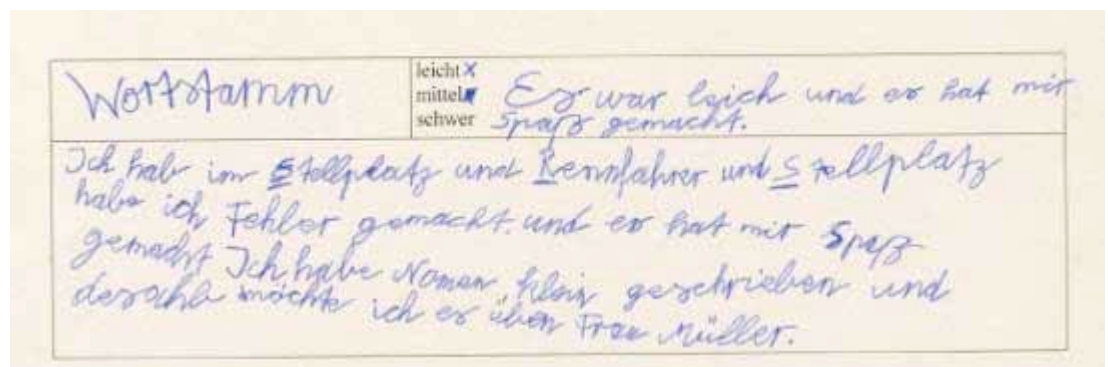 Wortstamm
leicht x
mittel
schwer
Es war leich und es hat mir
Spaß gemacht.
Ich hab im Stellplatz und Rennfahrer und Stellplatz
habe ich Fehler gemacht. und es hat mir Spaß
gemacht Ich habe Nomen klein geschrieben und
möchte ich es üben Frau Müller.